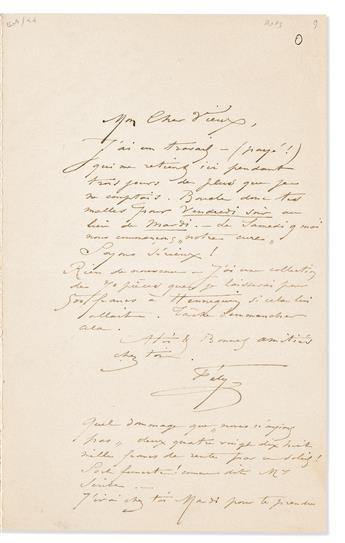 Mon Cher Vieux,
J'ai un travail — (payé!)
qui me retient ici pendant
trois jours de plus que je
ne comptais. Boucle donc tes
malles pour Vendredi soir au
lieu de Mardi. — Samedi 9 mai
nous commençons "notre cure"
Soyons Sérieux!
Rien de nouveau — J'ai une collection
de 70 pièces que je laisserais pour
500 francs à Hennequin si cela lui
allait. Tâche d'emmancher
cela.
Bonnes amitiés
chez toi.
Fély
Quel dommage que "nous n'ayions
pas" deux quatre vingt dix huit
mille francs de rente par ce soleil!
comme dit Mr
J'irai chez toi Mardi pour te prendre